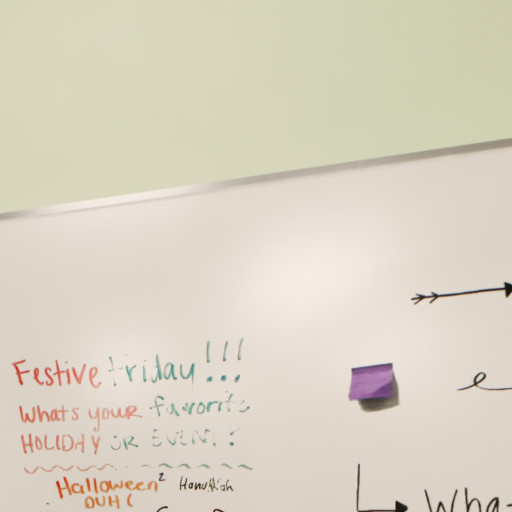 Festive friday!!!
Whats your favorite
HOLIDAY OR EVENT?
Halloween² Hanukkah
DUH!
Wha